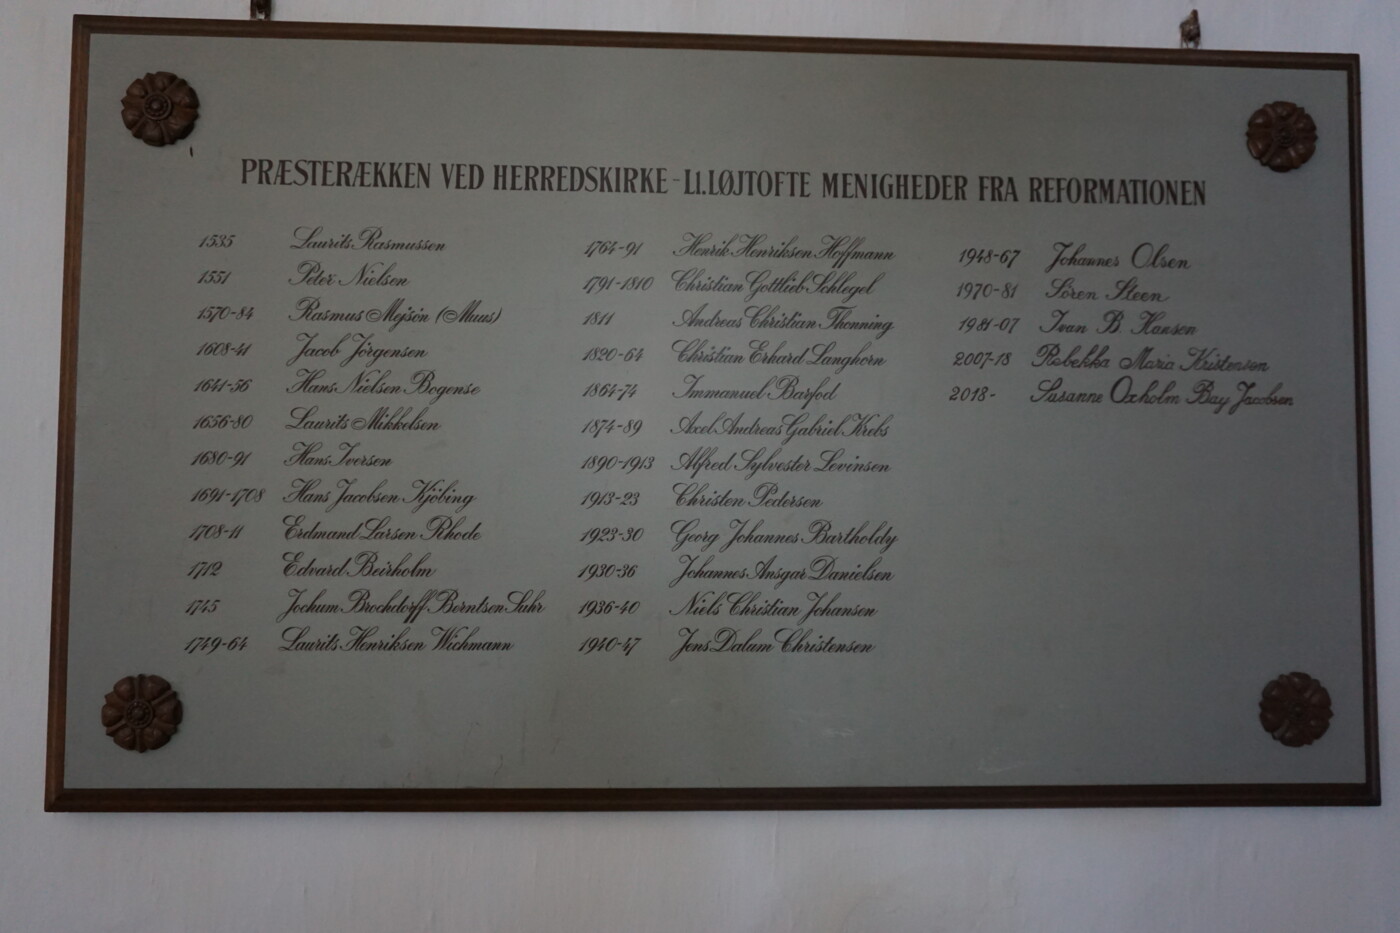 PRÆSTERÆKKEN VED HERREDSKIRKE - Ll. LØJTOFTE MENIGHEDER FRA REFORMATIONEN
1535 Laurits Rasmussen
1551 Peter Nielsen
1570-84 Rasmus Mejsön (Muus)
1608-41 Jacob Jörgensen
1641-56 Hans Nielsen Bogense
1656-80 Laurits Mikkelsen
1680-91 Hans Iversen
1691-1708 Hans Jacobsen Kjöbing
1708-11 Erdmand Larsen Rhode
1712 Edvard Beirholm
1745 Jochum Brochdorff Berntsen Suhr
1749-64 Laurits Henriksen Wichmann
1764-91 Henrik Henriksen Hoffmann
1791-1810 Christian Gottlieb Schlegel
1811 Andreas Christian Thonning
1820-64 Christian Erhard Langhorn
1864-74 Immanuel Barfod
1874-89 Axel Andreas Gabriel Krebs
1890-1913 Alfred Sylvester Levinsen
1913-23 Christen Pedersen
1923-30 Georg Johannes Bartholdy
1930-36 Johannes Ansgar Danielsen
1936-40 Niels Christian Johansen
1940-47 Jens Dalum Christensen
1948-67 Johannes Olsen
1970-81 Sören Steen
1981-07 Ivan B. Hansen
2007-18 Rebekka Maria Kristensen
2018- Susanne Oxholm Bay Jacobsen